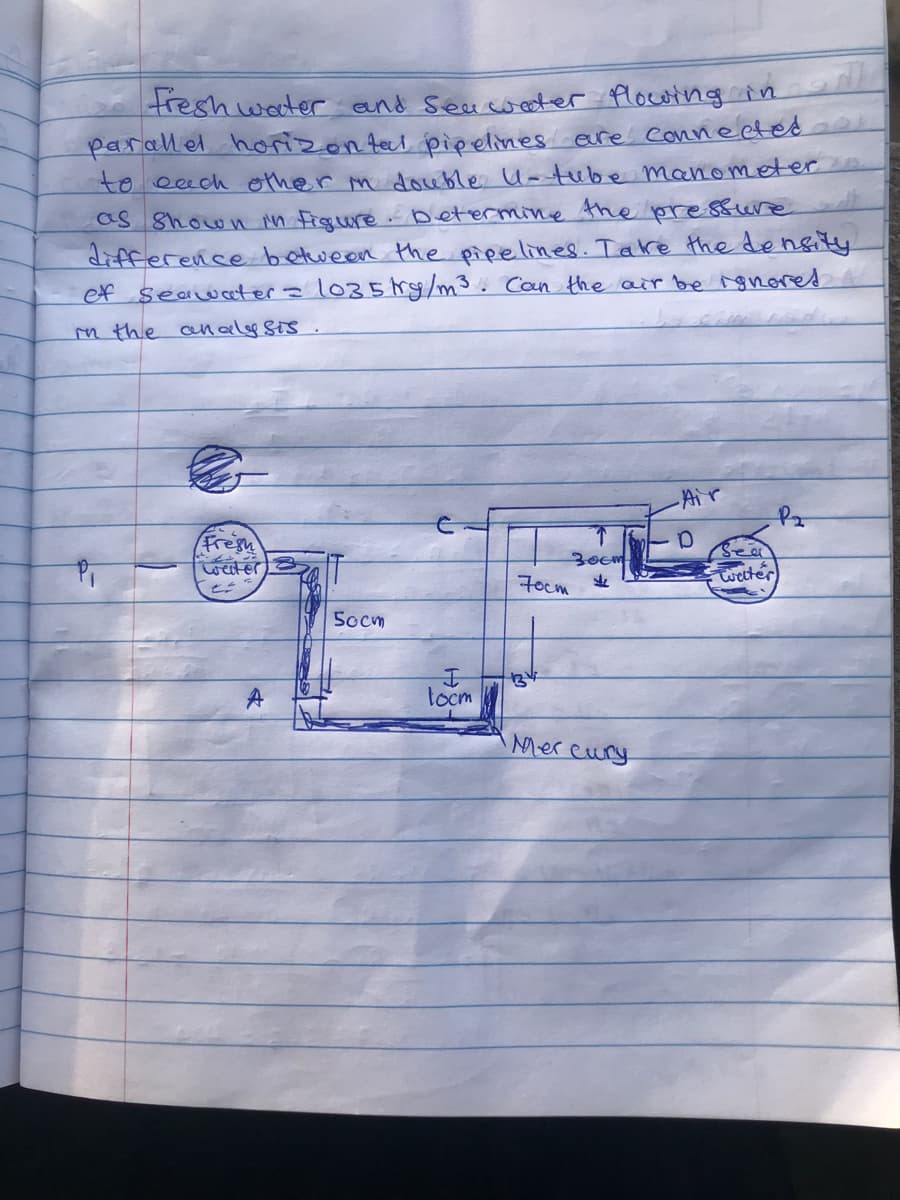 Freshwater and Seawater flowing in
parallel horizontal pipelines are connected
to each other in double U-tube manometer
as shown in figure. Determine the pressure
difference between the pipelines. Take the density
of seawater = 1035kg/m³. Can the air be ignored
in the analysis.
Air
C
P₂
D
Fresh
water
Sea
water
P₁
30cm
70cm
50cm
B
10cm
A
Mercury